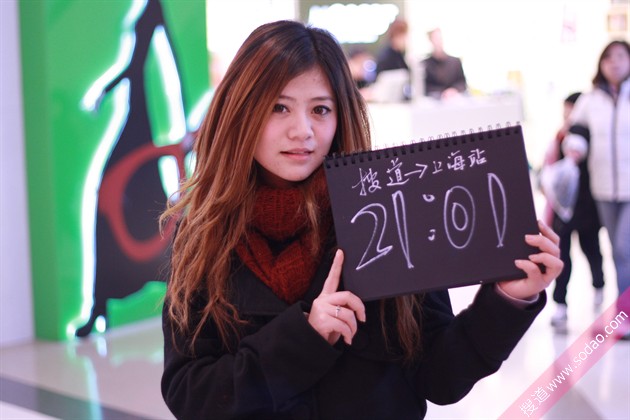 搜道→上海站
21:01
搜道www.sodao.com